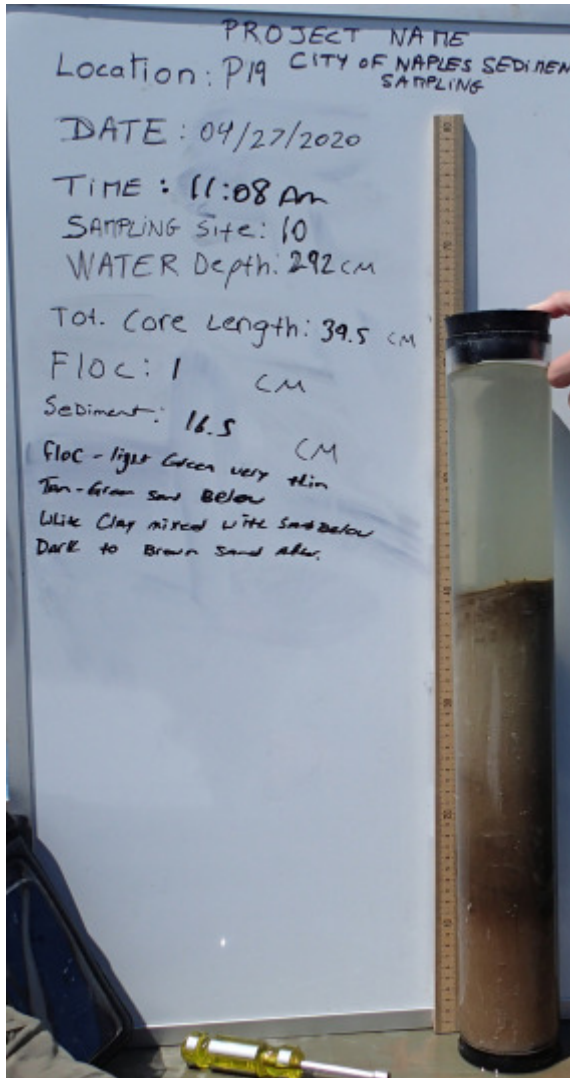 PROJECT NAME
Location: P19 CITY OF NAPLES SEDIMEN
SAMPLING
DATE: 04/27/2020
TIME: 11:08 Am
SAMPLING Site: 10
WATER Depth: 292 CM
Tot. Core Length: 39.5 CM
FloC: 1 CM
Sediment: 16.5 CM
Floc - light Green very thin
Tan-Green sand Below
White Clay mixed with Sand Below
Dark to Brown Sand